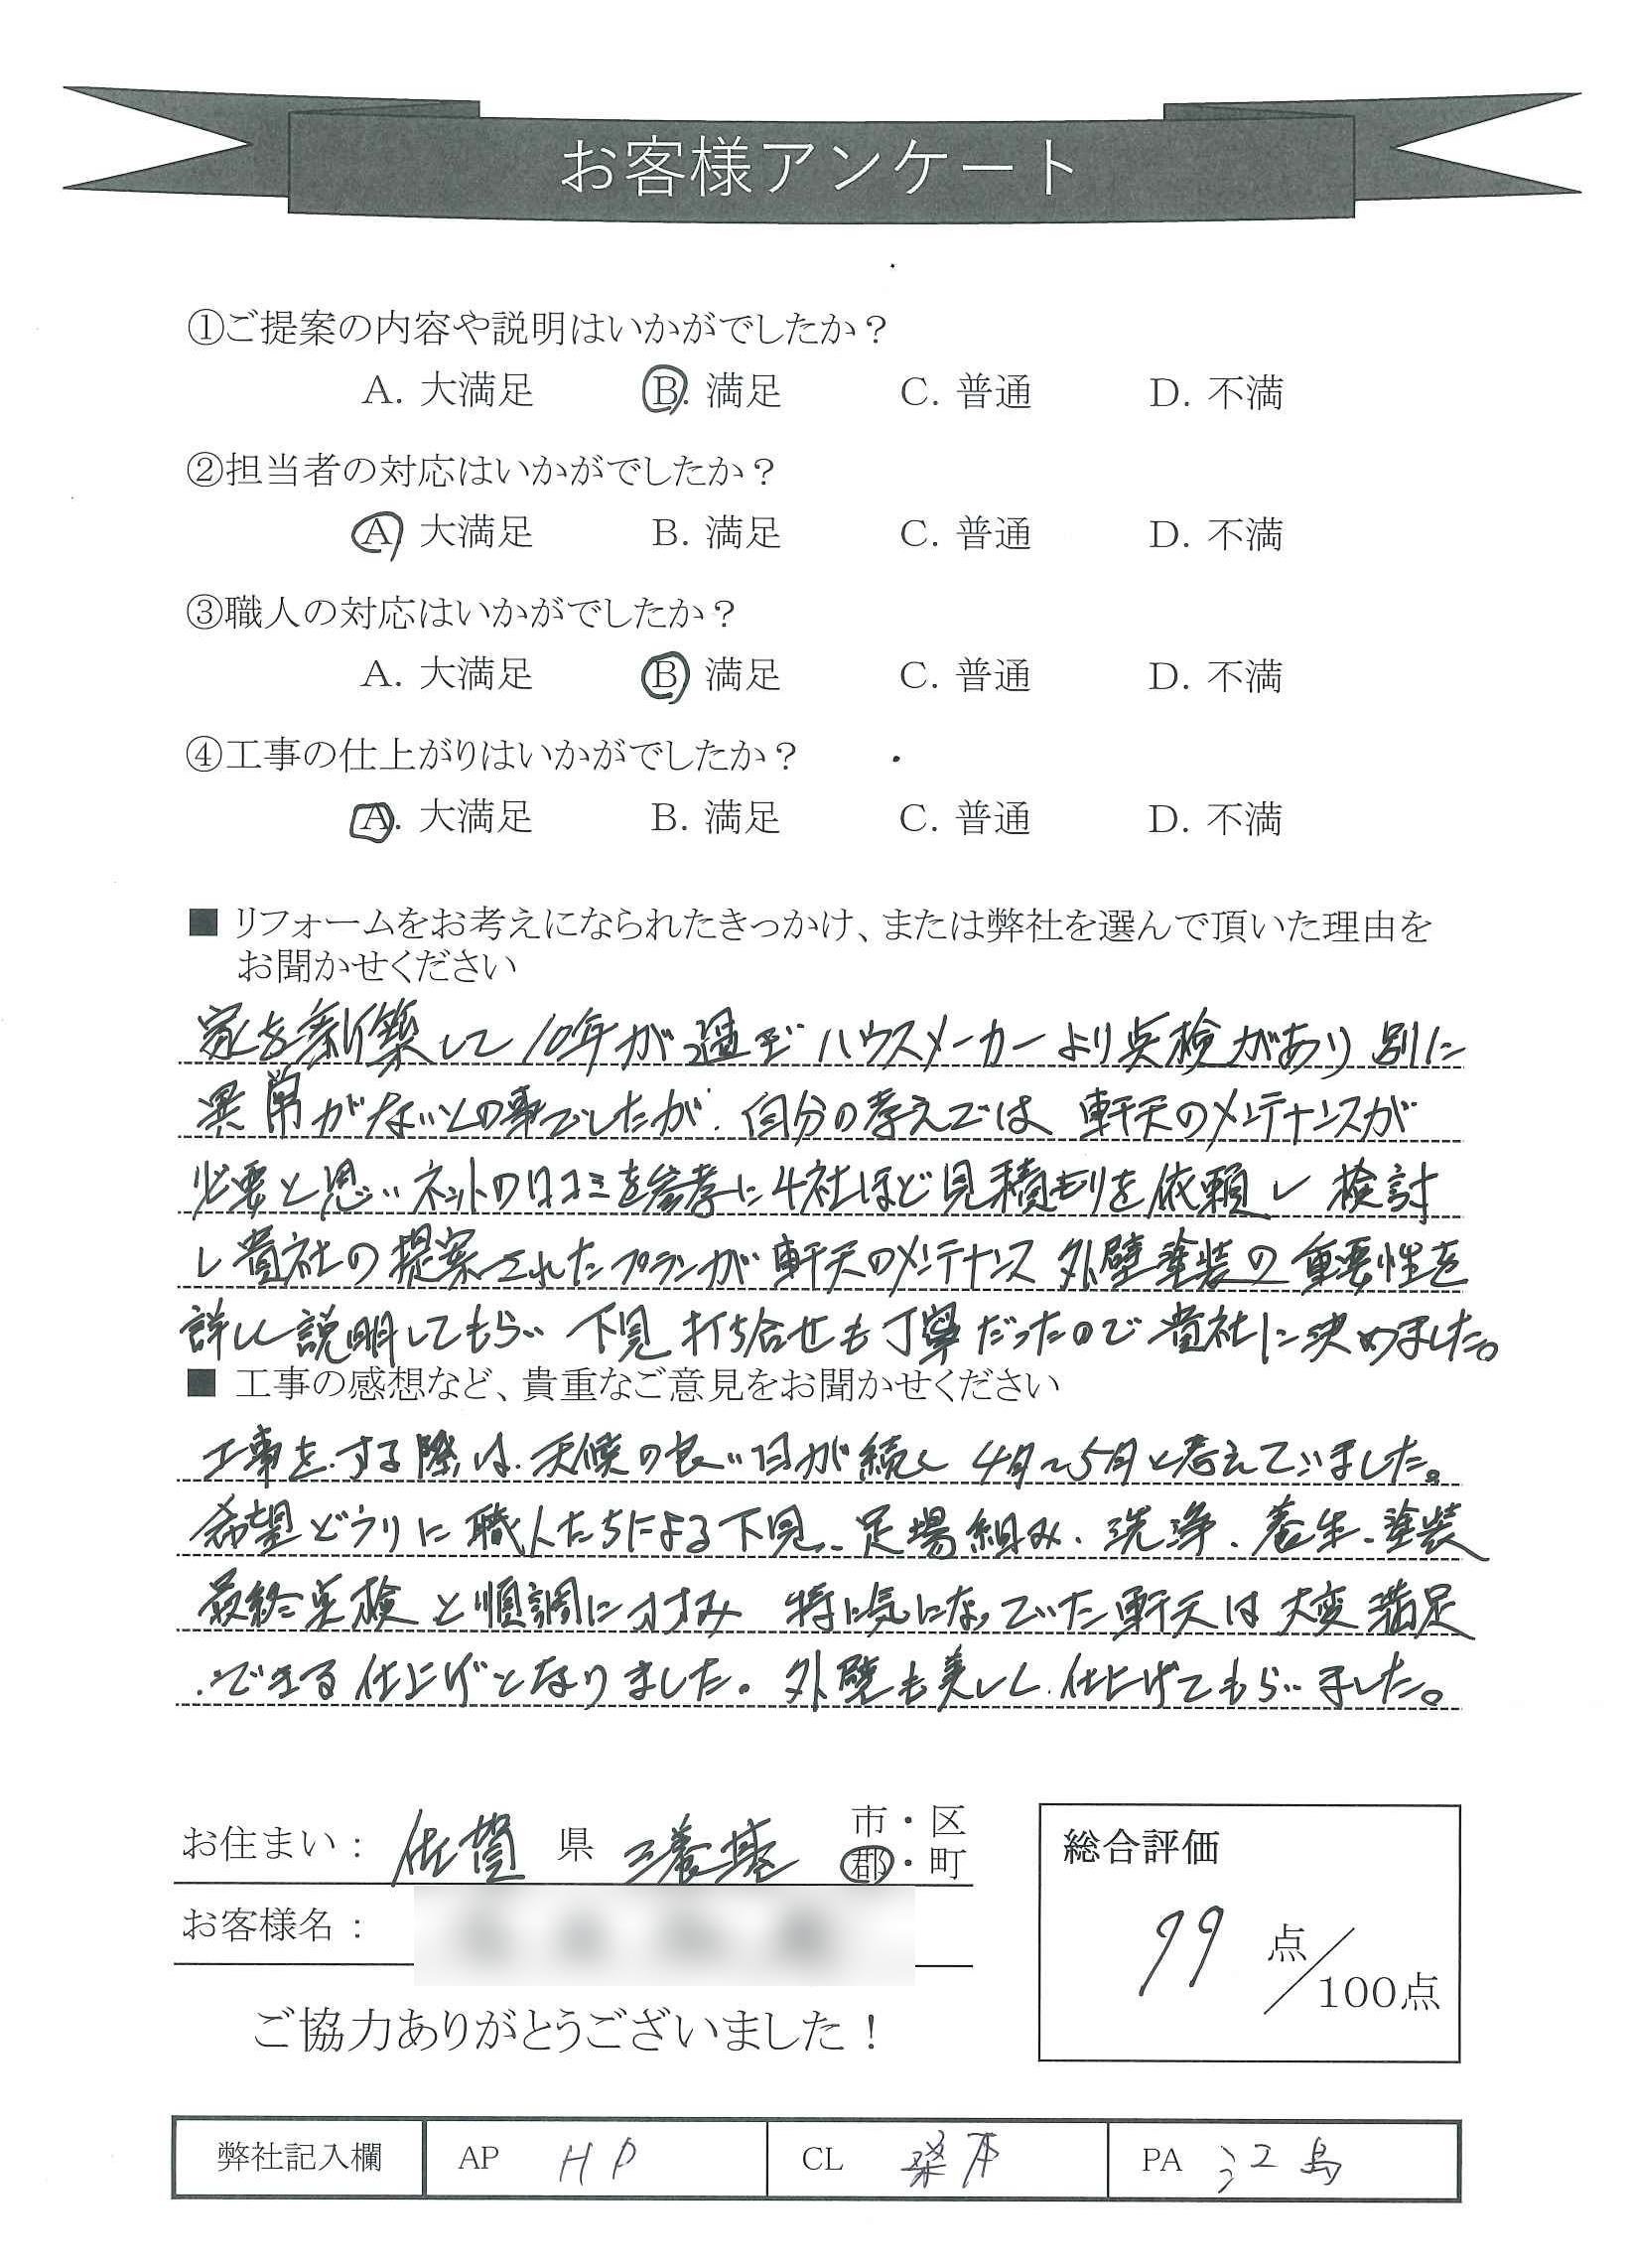 お客様アンケート
①ご提案の内容や説明はいかがでしたか？
A. 大満足 B. 満足 C. 普通 D. 不満
②担当者の対応はいかがでしたか？
A. 大満足 B. 満足 C. 普通 D. 不満
③職人の対応はいかがでしたか？
A. 大満足 B. 満足 C. 普通 D. 不満
④工事の仕上がりはいかがでしたか？
A. 大満足 B. 満足 C. 普通 D. 不満
■ リフォームをお考えになられたきっかけ、または弊社を選んで頂いた理由を
お聞かせください
家を新築して10年が過ぎ ハウスメーカーより点検があり 別に
異常がないとの事でしたが、自分の考えでは 軒天のメンテナンスが
必要と思い ネットの口コミを参考に4社ほど見積もりを依頼し 検討
し貴社の提案されたプランが軒天のメンテナンス 外壁塗装の重要性を
詳しく説明してもらい 下見 打ち合せも丁寧だったので貴社に決めました。
■ 工事の感想など、貴重なご意見をお聞かせください
工事をする際は、天候の良い日が続く 4月~5月と考えていました。
希望どうりに職人たちによる下見、足場組み、洗浄、養生、塗装
最終点検と順調にすすみ 特に気になっていた軒天は大変満足
できる仕上げとなりました。外壁も美しく仕上げてもらいました。
お住まい： 佐賀 県 三養基 市・区
郡・町
お客様名：
総合評価
99 点／100点
ご協力ありがとうございました！
弊社記入欄 AP HP CL 桑原 PA 江島